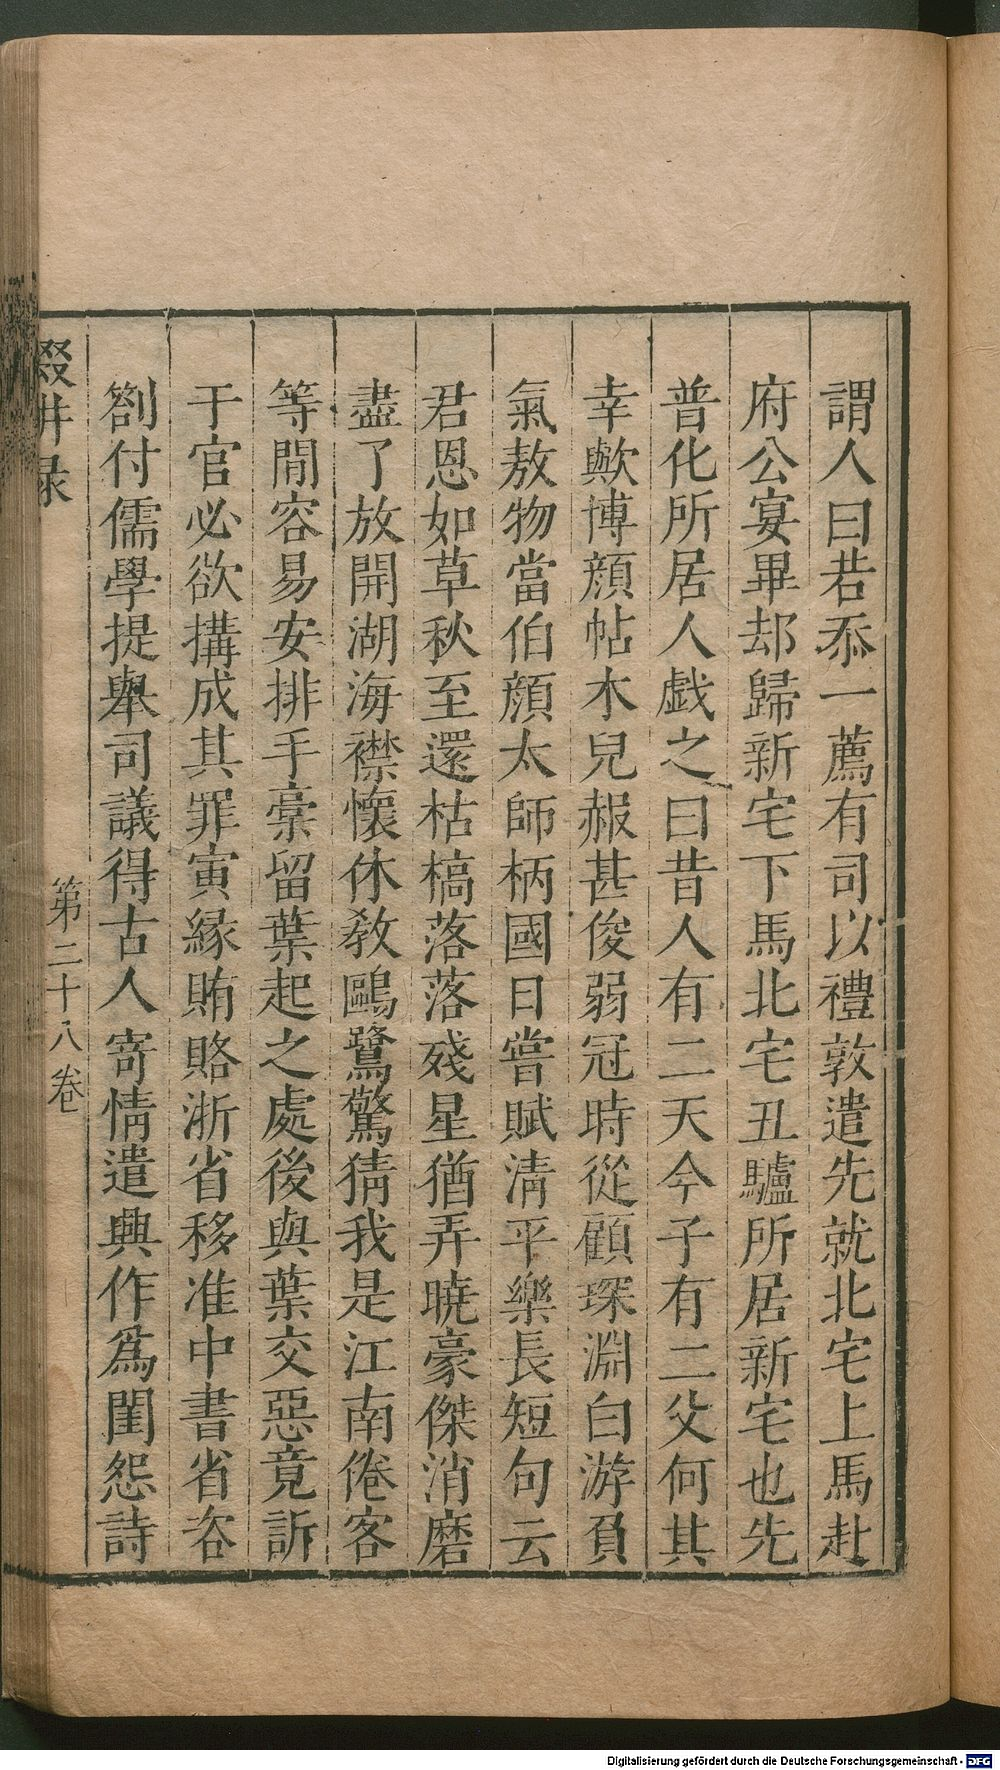 謂人曰若忝一薦有司以禮敦遣先就北宅上馬赴
府公宴畢却歸新宅下馬北宅丑驢所居新宅也先
普化所居人戯之曰昔人有二天今子有二父何其
幸歟博顔帖木兒赧甚俊弱冠時從顧琛淵白游負
氣敖物當伯顔太師柄國日嘗賦清平樂長短句云
君恩如草秋至還枯槁落落殘星猶弄曉豪傑消磨
盡了放開湖海襟懷休教鷗鷺驚猜我是江南倦客
等閒容易安排手稾留葉起之處後與葉交惡竟訴
于官必欲搆成其罪寅緣賄賂浙省移准中書省咨
劄付儒學提舉司議得古人寄情遣興作爲閨怨詩
綴畊录
第二十八卷
Digitalisierung gefördert durch die Deutsche Forschungsgemeinschaft - DFG